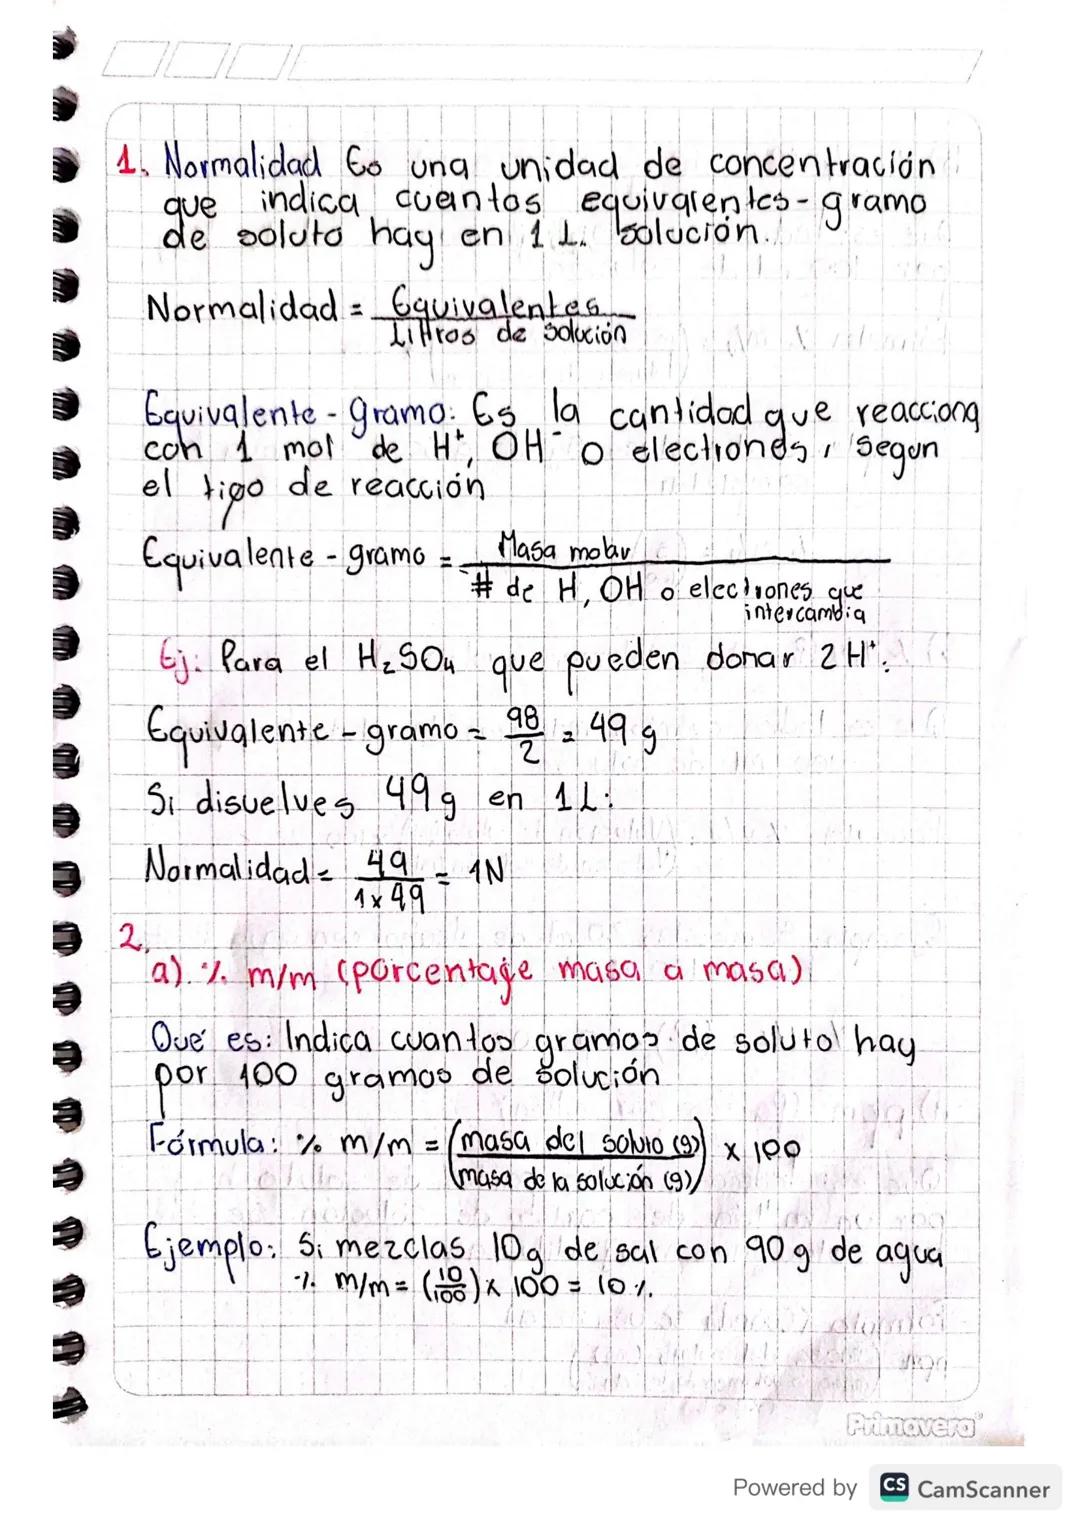 1. Normalidad Es una unidad de concentración
que indica cuantos equivalentes-gramo
de soluto hay en 1 L. solución.
Normalidad = Equivalentes
Littros de solución
Equivalente - gramo: Es la cantidad que reacciona
con 1 mol de H⁺, OH⁻ o electrones, segun
el tipo de reacción
Equivalente - gramo = Masa molar
# de H, OH o electrones que
intercambia
Ej: Para el H₂SO₄ que pueden donar 2H⁺.
Equivalente - gramo = 98/2 = 49 g
Si disuelves 49g en 1L:
Normalidad = 49/1x49 = 1N
2.
a). % m/m (porcentaje masa a masa)
Qué es: Indica cuantos gramos de soluto hay
por 100 gramos de solución
Fórmula: % m/m = (masa del soluto (g)) x 100
(masa de la solución (g))
Ejemplo: Si mezclas 10g de sal con 90g de agua
% m/m = (10/100) x 100 = 10%.
Primavera
Powered by CS CamScanner